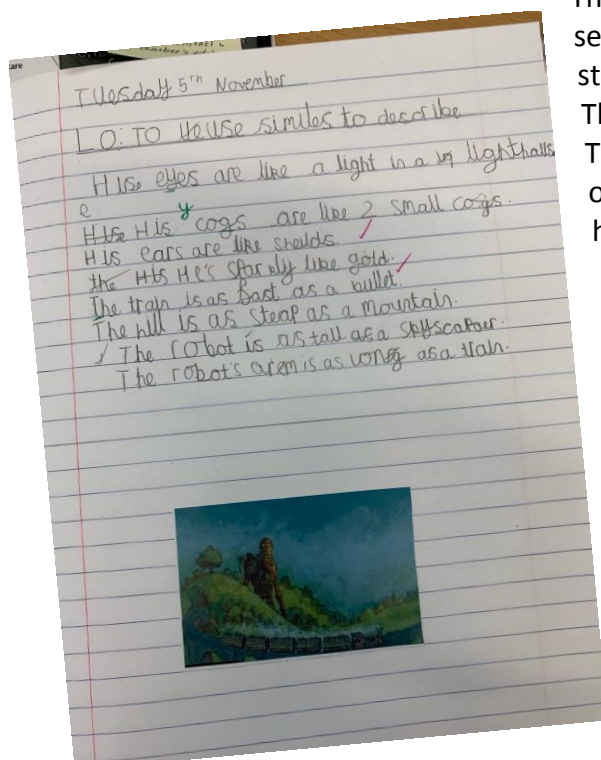 Tuesday 5th November
LO: TO use similes to describe
eyes are like a light in a lighthaus
e.
His cogs are like 2 small cogs.
y
His ears are like sheilds.
His He's sparkly like gold.
The train is as fast as a bullet.
The hill is as steap as a mountain.
The robot is as tall as a
The robot's arem is as long as a train.
care
se
st
Th
T
o
h